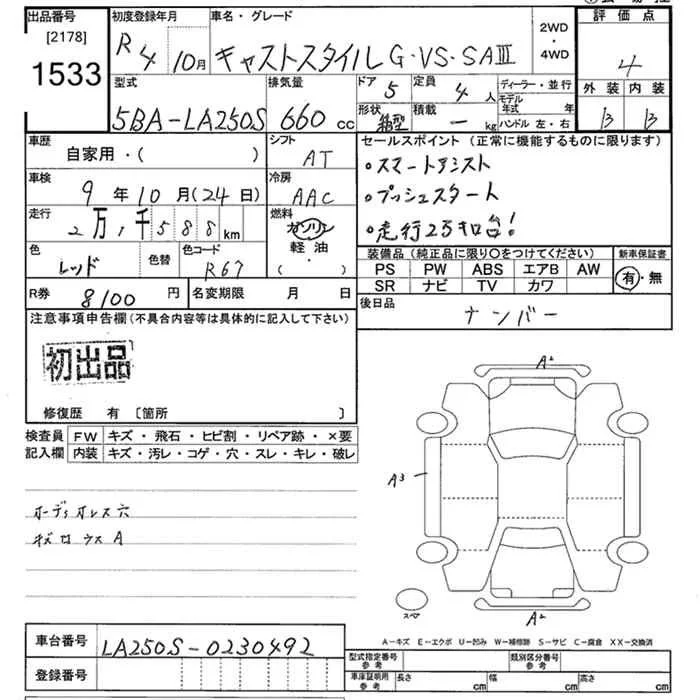 出品番号
[2178]
1533
初度登録年月
R4 10月
車名・グレード
キャストスタイル G・VS・SAⅢ
2WD
・
4WD
評価点
4
外装 内装
B B
型式
5BA-LA250S
排気量
660 cc
ドア 5
定員 4 人
形状 箱型
積載 - kg
ディーラー・並行
モデル年式 年
ハンドル 左・右
車歴
自家用・( )
シフト
AT
車検
9年10月(24日)
冷房
AAC
走行
2万,千588 km
燃料
ガソリン
軽油
・( )
色
レッド
色替
色コード
R67
R券 8100 円
名変期限 月 日
セールスポイント(正常に機能するものに限ります)
・スマートアシスト
・プッシュスタート
・走行2万キロ台!
装備品(純正品に限り〇をつけてください)
PS PW ABS エアB AW
SR ナビ TV カワ
新車保証書
有・無
後日品
ナンバー
注意事項申告欄(不具合内容等は具体的に記入して下さい)
初出品
修復歴 有 〔箇所 〕
検査員記入欄
FW キズ・飛石・ヒビ割・リペア跡・×要
内装 キズ・汚レ・コゲ・穴・スレ・キレ・破レ
オーディオレス穴
キズ ロウスA
A2
A3
A2
スペア
A-キズ E-エクボ U-凹み W-補修跡 S-サビ C-腐食 XX-交換済
車台番号 LA250S-0230492
登録番号
型式指定番号 参考
類別区分番号 参考
車庫証明用 参考
長さ cm 幅 cm 高さ cm